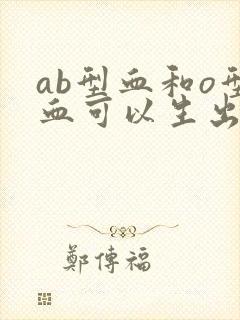 ab型血和o型
血可以生出
鄭傳福